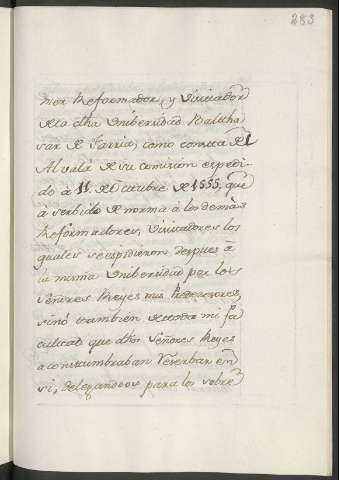 283
mer Reformador, y Visitador
de la dha Unibersidad Baltha
sar de Faria, como consta del
Alvalá de su comision expedi-
do à 11. de Octubre de 1555, que
à serbido de norma à los demàs
Reformadores, Visitadores los
quales se expidieron despues à
la misma Unibersidad por los
Señores Reyes mis Predecesores,
sinó tambien de toda mi fa
cultad que dhos Señores Reyes
acostumbraban reserbar en
si, delegandoos para lo sobre